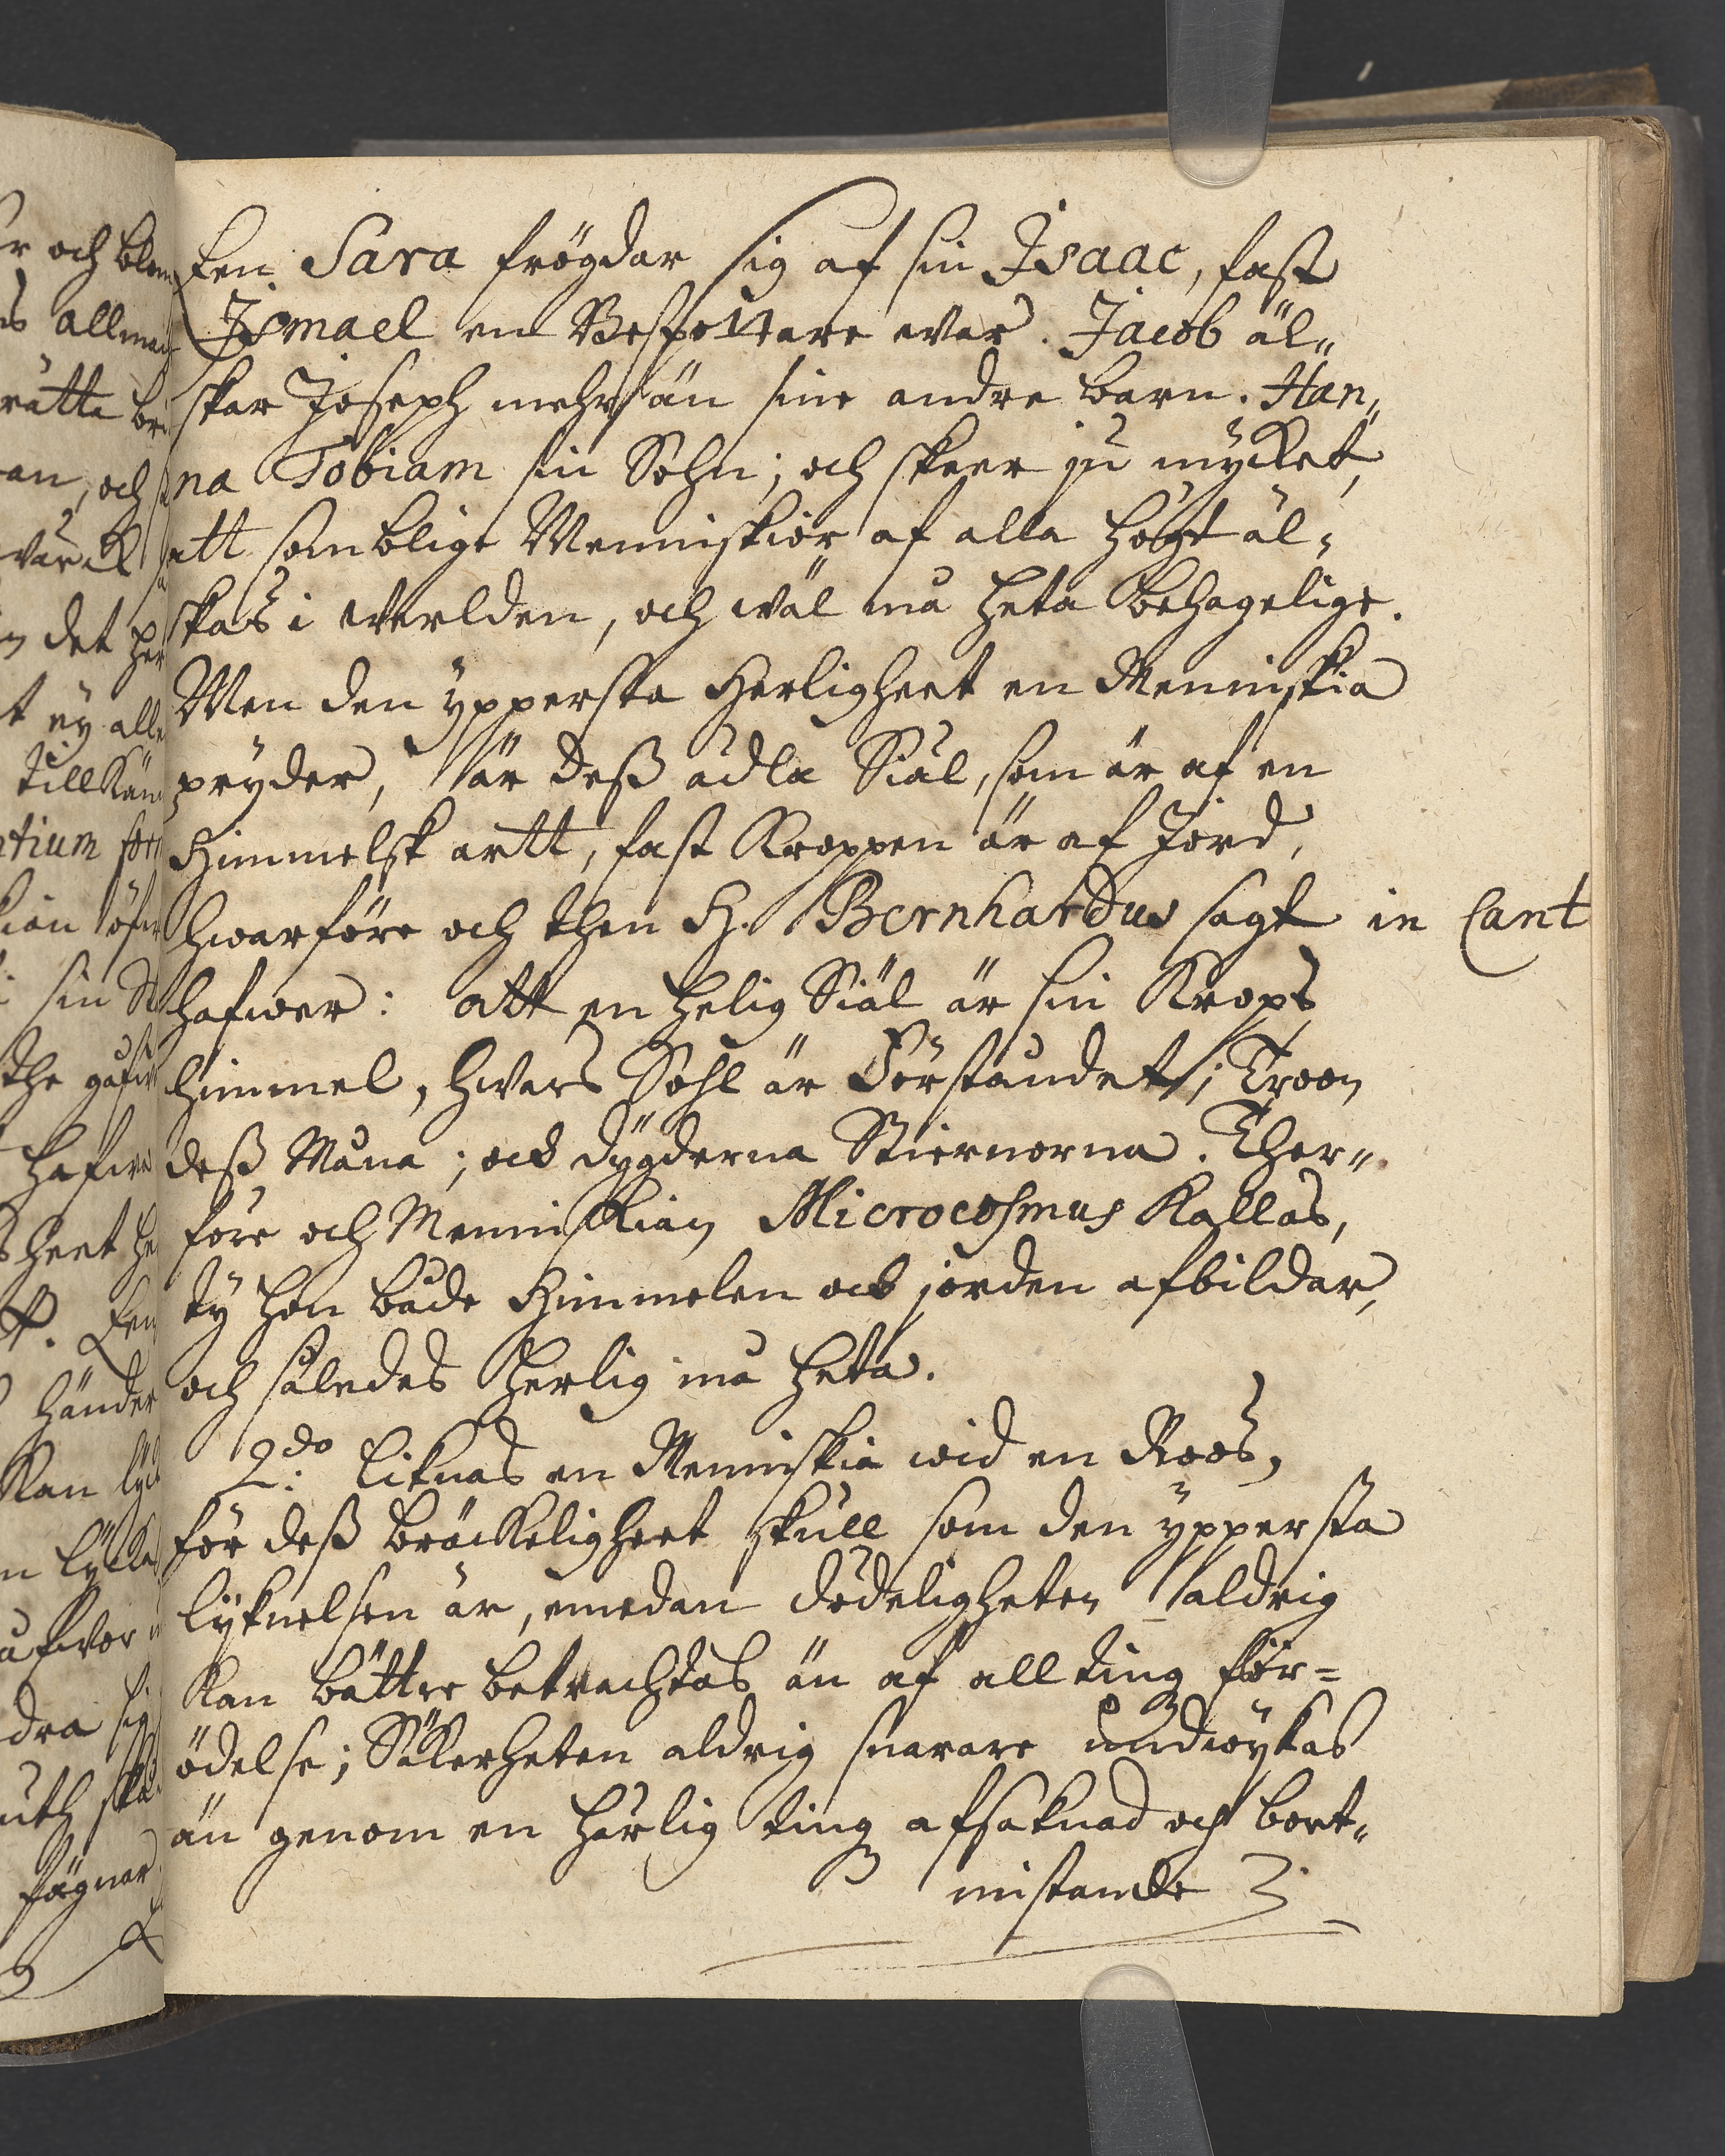 En Sara frögdar sig af sin Isaac, fast
Ismael en Bespottare war. Jacob äl„
skar Joseph mehr än sine andre barn. Han„
na Tobiam sin Sohn; och skeer ju mycket,
att somblige Menniskior af alla högt äl„
skas i werlden, och wäl må heta behagelige.
Men den ypperste Herligheet en Menniskia
pryder, är deß ädla Siäl, som är af en
Himmelsk artt, fast Kroppen är af Jord,
hwarföre och then H. Bernhardus sagt in Cant
hafwer: att en helig Siäl är sin Krops
himmel, hwars Sohl är Förståndet; Troon
deß Måna; ock dygderna Stiernorna. Ther„
före och Menniskian Microcosmus Kallas,
ty hon både Himmelen ock jorden afbildar,
och således herlig må heta.
2do. liknas en Menniskia wid en Roos,
för deß bräckeligheet skull som den yppersta
lyknelsen är, emedan dödeligheten aldrig
Kan bättre betrachtas än af all ting för=
ödelse; Säkerheten aldrig snarare undwykas
än genom en härlig ting afsaknad och bort„
mistande